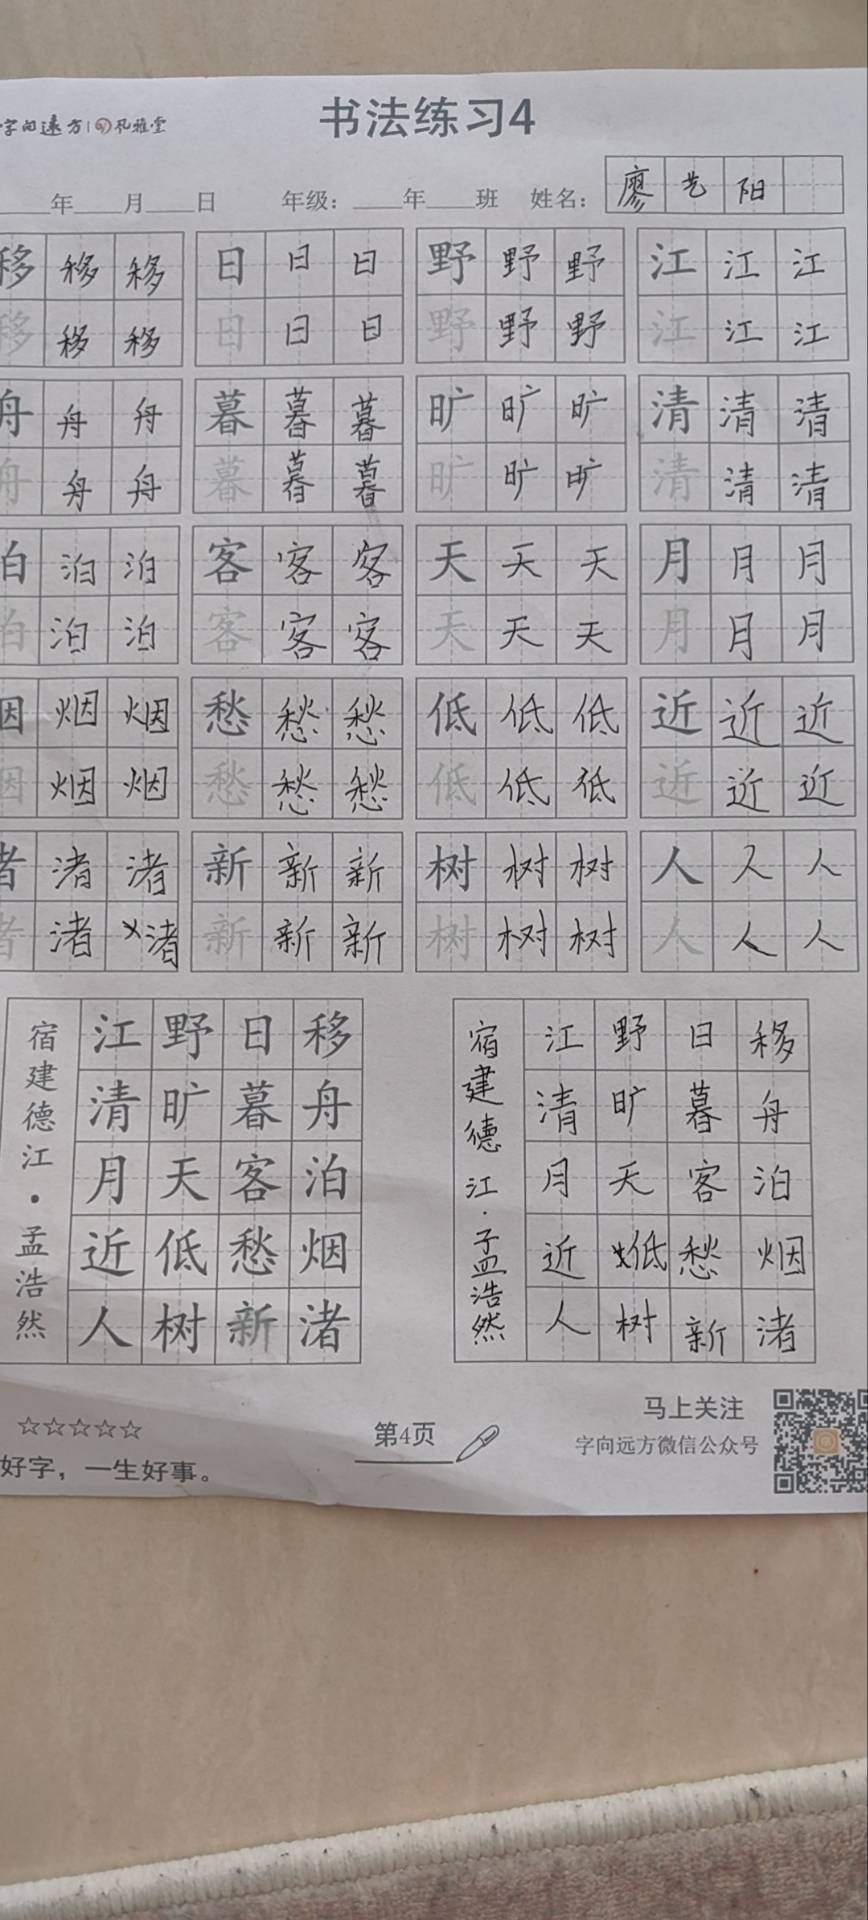 字向远方 孔雅堂
书法练习4
年 月 日 年级： 年 班 姓名： 廖艺阳
移 移 移 日 日 日 野 野 野 江 江 江
移 移 移 日 日 日 野 野 野 江 江 江
舟 舟 舟 暮 暮 暮 旷 旷 旷 清 清 清
舟 舟 舟 暮 暮 暮 旷 旷 旷 清 清 清
泊 泊 泊 客 客 客 天 天 天 月 月 月
泊 泊 泊 客 客 客 天 天 天 月 月 月
烟 烟 烟 愁 愁 愁 低 低 低 近 近 近
烟 烟 烟 愁 愁 愁 低 低 低 近 近 近
渚 渚 渚 新 新 新 树 树 树 人 人 人
渚 渚 渚 新 新 新 树 树 树 人 人 人
移舟泊烟渚
日暮客愁新
野旷天低树
江清月近人
宿建德江·孟浩然
移舟泊烟渚
日暮客愁新
野旷天低树
江清月近人
宿建德江·孟浩然
☆☆☆☆☆
好字，一生好事。
第4页
马上关注
字向远方微信公众号